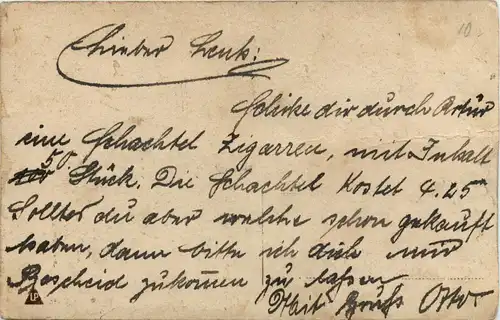 10
Lieber Lenk:
Schicke dir durch Artur
eine Schachtel Zigarren, mit Inhalt
50 Stück. Die Schachtel Kostet 4.25
Solltes du aber welche schon gekauft
haben, dann bitte ich dich mir
Bescheid zukommen zu lassen
Mit Gruß Otto
LP